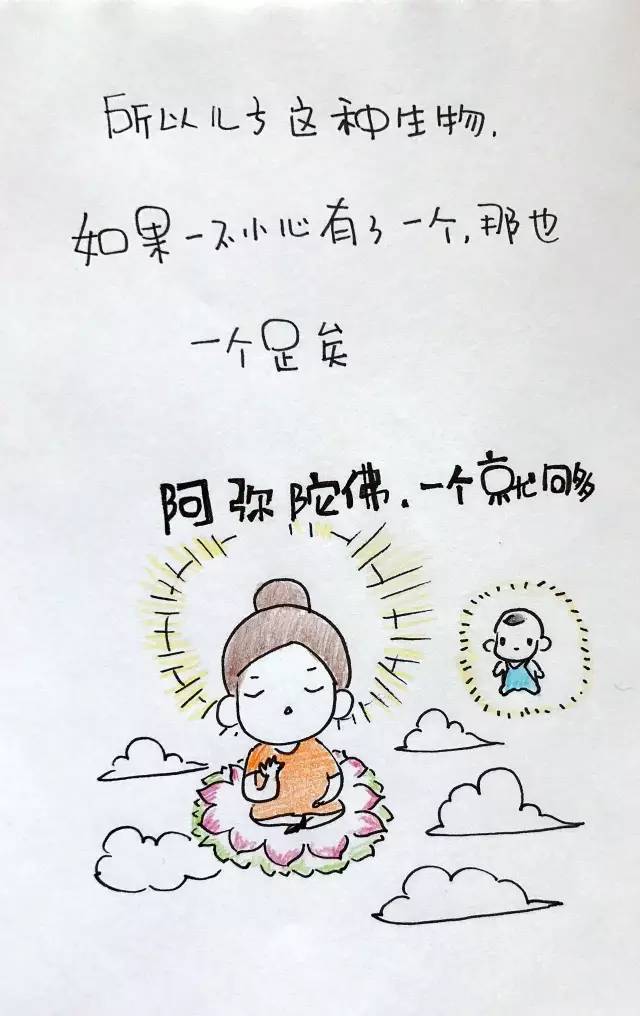 所以儿子这种生物,
如果一不小心有了一个,那也
一个足矣
阿弥陀佛.一个就够